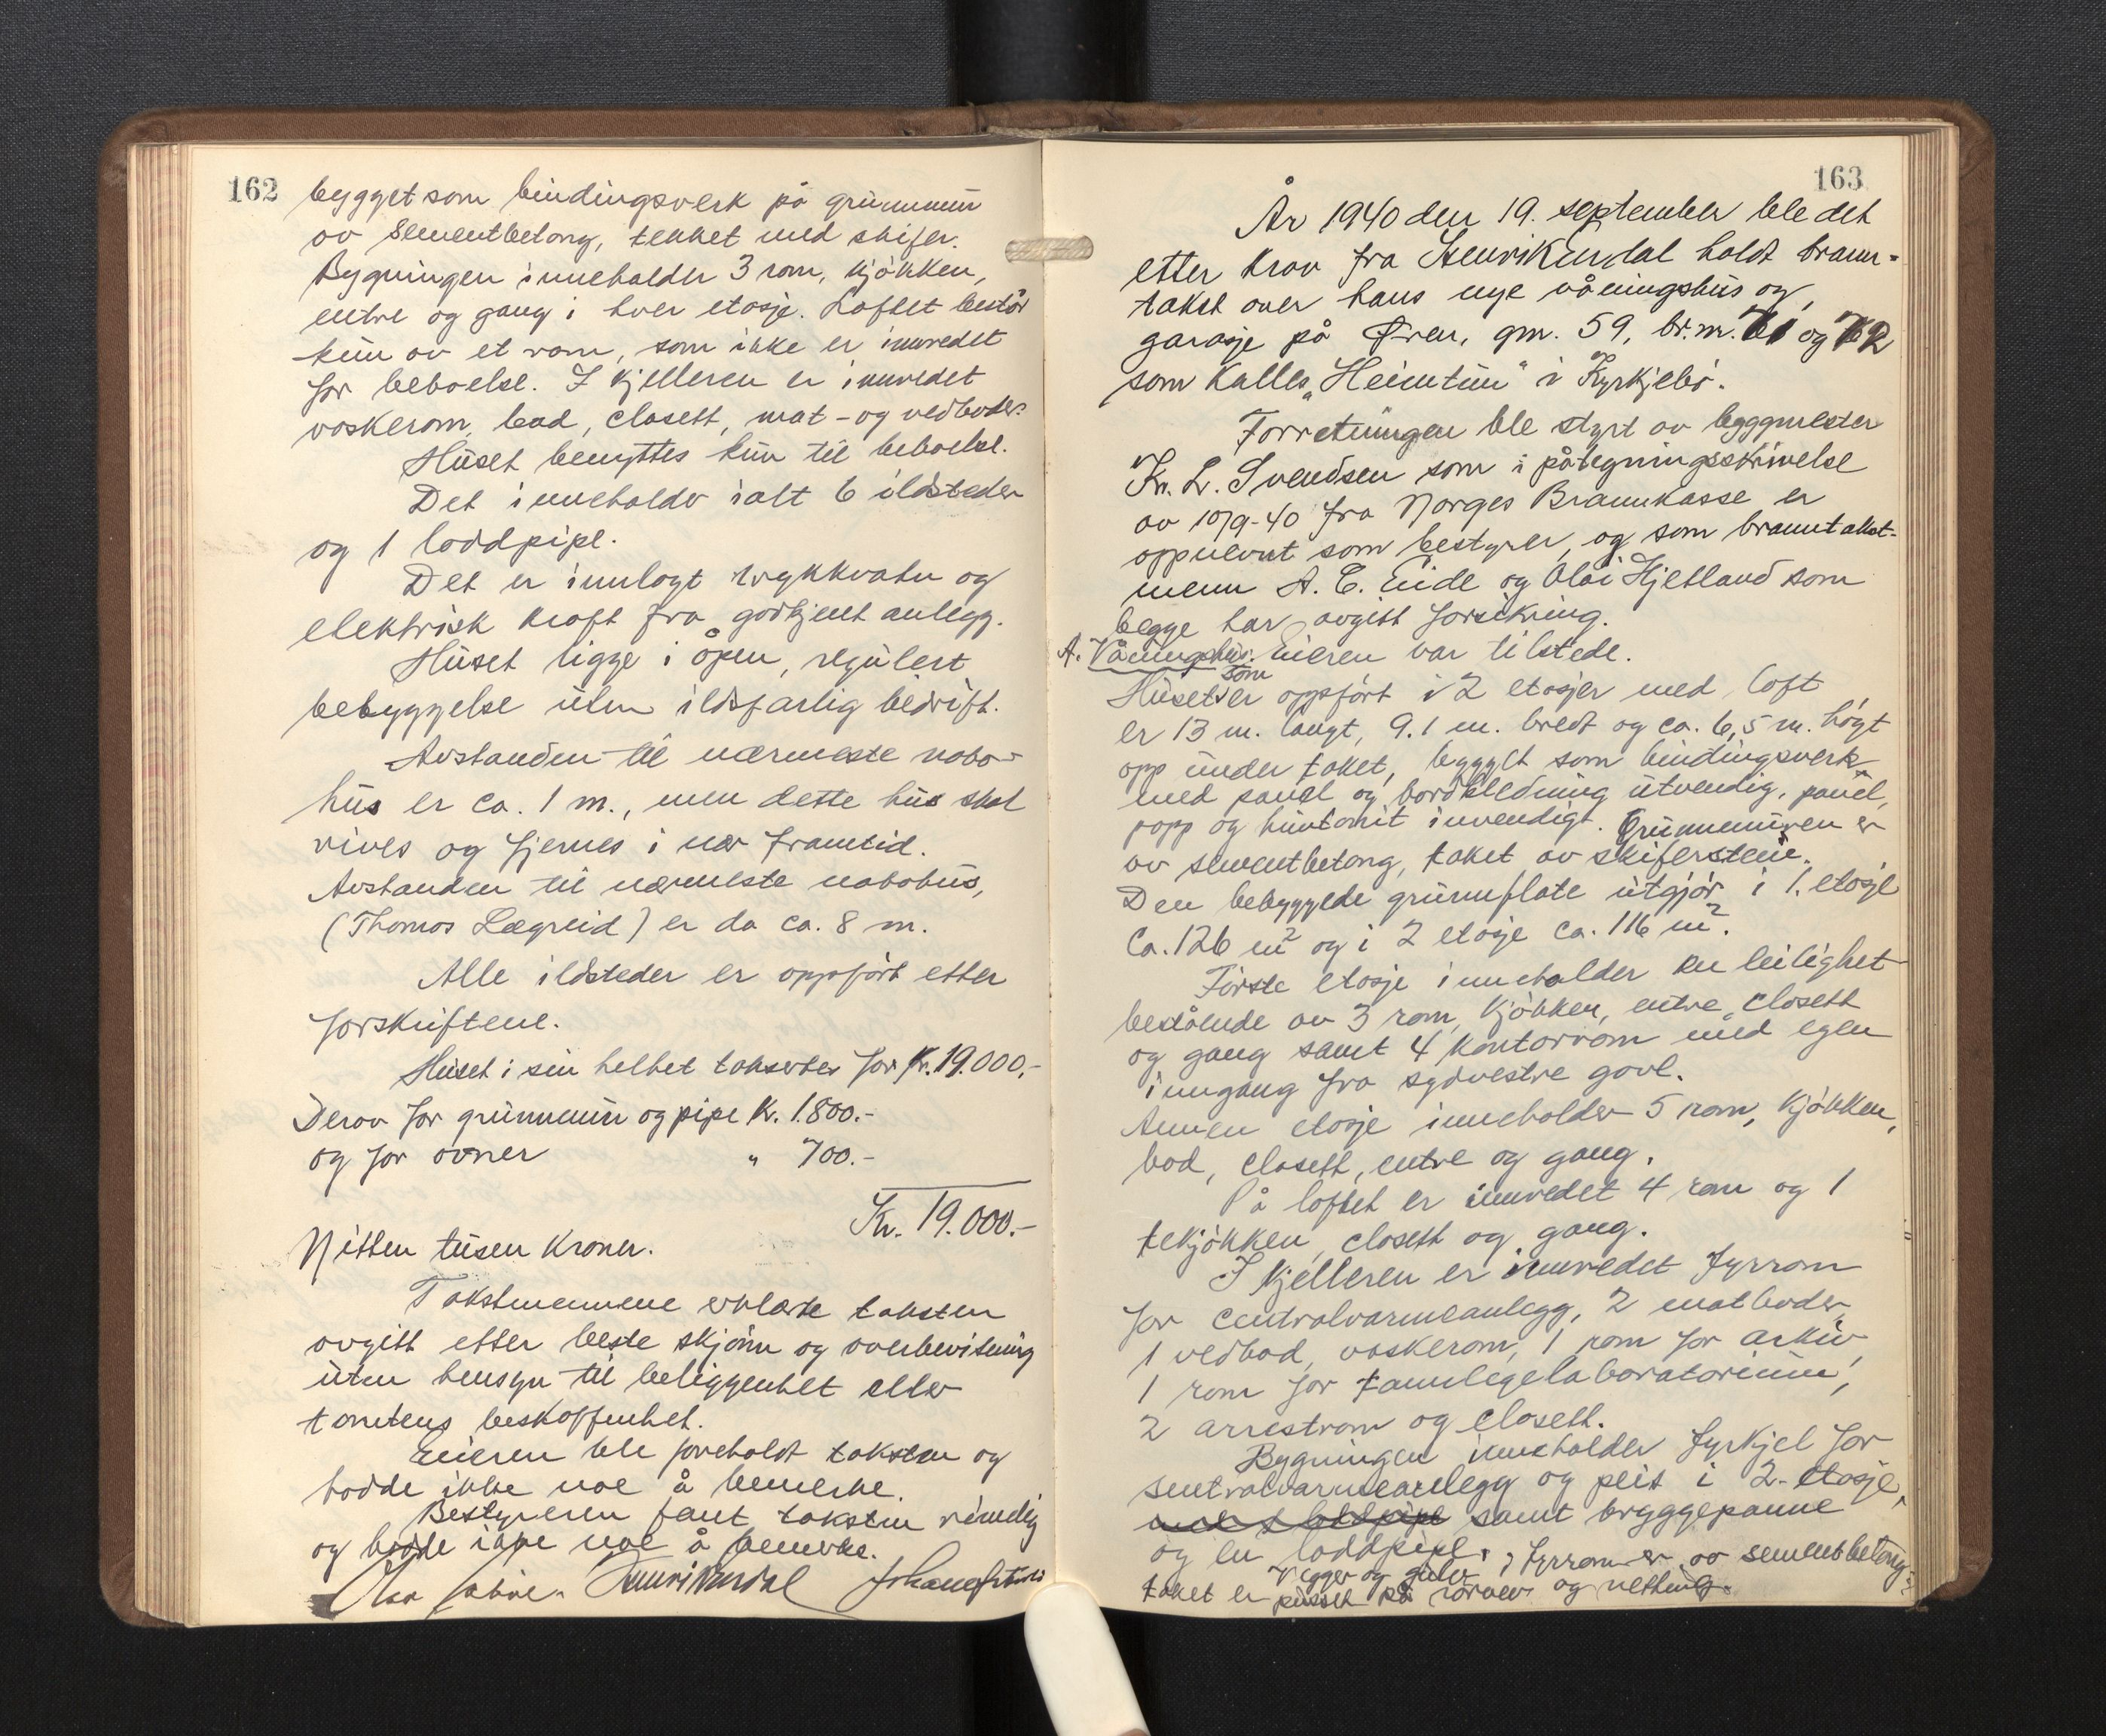 162
bygget som bindingsverk på grunnmur
av sementbetong, tekket med skifer.
Bygningen inneholder 3 rom, kjøkken,
entre og gang i hver etasje. Loftet består
kun av et rom, som ikke er innredet
for beboelse. I kjelleren er innredet
vaskerom, bad, closett, mat- og vedboder.
Huset benyttes kun til beboelse.
Det inneholdr ialt 6 ildsteder
og 1 loddpipe.
Det er innlagt trykkvatn og
elektrisk kraft fra godkjent anlegg.
Huset ligge i åpen, regulert
bebyggelse uten ildsfarlig bedrift.
Avstanden til nærmeste nabo-
hus er ca. 1 m., men dette hus skal
rives og fjernes i nær framtid.
Avstanden til nærmeste nabohus,
(Thomas Lægreid) er da ca. 8 m.
Alle ildsteder er oppført etter
forskriftene.
Huset i sin helhet takseres for Kr. 19.000.-
Derav for grunnmur og pipe Kr. 1.800.-
og for ovner " 700.-
Kr. 19.000.-
Nitten tusen kroner.
Takstmennene erklærte taksten
avgitt etter beste skjønn og overbevisning
uten hensyn til beliggenhet eller
tomtens beskaffenhet.
Eieren ble foreholdt taksten og
hadde ikke noe å bemerke.
Bestyreren fant taksten rimelig
og hadde ikke noe å bemerke.
163
År 1940 den 19. september ble det
etter krav fra Henrik Urdal holdt brann-
takst over hans nye våningshus og
garasje på Øren, gnr. 59, br.nr. 71 og 72
som kalles "Heimtun" i Kyrkjebø.
Forretningen ble styrt av byggmester
Kr. L. Svendsen som i påtegningsskrivelse
av 10/9-40 fra Norges Brannkasse er
oppnevnt som bestyrer, og som branntakst-
menn A. E. Eide og Olai Hjetland som
begge har avgitt forsikring.
A. Våningshus. Eieren var tilstede.
Huset som er oppført i 2 etasjer med loft
er 13 m. langt, 9.1 m. bredt og ca. 6,5 m. høgt
opp under taket, bygget som bindingsverk
med panel og bordkledning utvendig, panel,
papp og huntonit innvendigt. Grunnmuren er
av sementbetong, taket av skiferstein.
Den bebyggede grunnflate utgjør i 1. etasje
ca. 126 m² og i 2 etasje ca. 116 m².
Første etasje inneholder en leilighet
bestående av 3 rom, kjøkken, entre, closett
og gang samt 4 kontorrom med egen
inngang fra sydvestre gavl.
Annen etasje inneholder 5 rom, kjøkken,
bad, closett, entre og gang.
På loftet er innredet 4 rom og 1
tekjøkken, closett og gang.
I kjelleren er innredet fyrrom
for centralvarmeanlegg, 2 matboder,
1 vedbod, vaskerom, 1 rom for arkiv,
1 rom for tannlegelaboratorium,
2 arrestrom og closett.
Bygningen inneholder fyrkjel for
sentralvarmeanlegg og peis i 2. etasje,
samt bryggepanne
og en loddpipe. Vegger og gulv i fyrrom er av sementbetong,
taket er pusset på rørvev og netting.